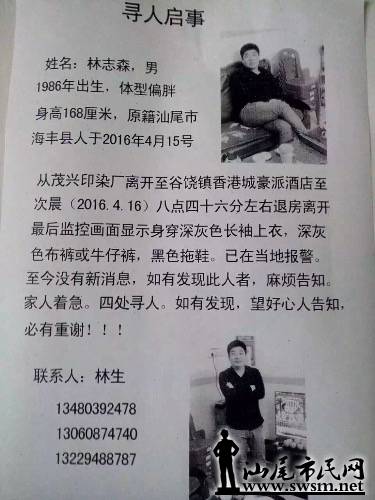 寻人启事
姓名：林志森，男
1986年出生，体型偏胖
身高168厘米，原籍汕尾市
海丰县人于2016年4月15号
从茂兴印染厂离开至谷饶镇香港城豪派酒店至
次晨（2016.4.16）八点四十六分左右退房离开
最后监控画面显示身穿深灰色长袖上衣，深灰
色布裤或牛仔裤，黑色拖鞋。已在当地报警。
至今没有新消息，如有发现此人者，麻烦告知。
家人着急。四处寻人。如有发现，望好心人告知，
必有重谢！！！
联系人：林生
13480392478
13060874740
13229488787
汕尾市民网
www.swsm.net